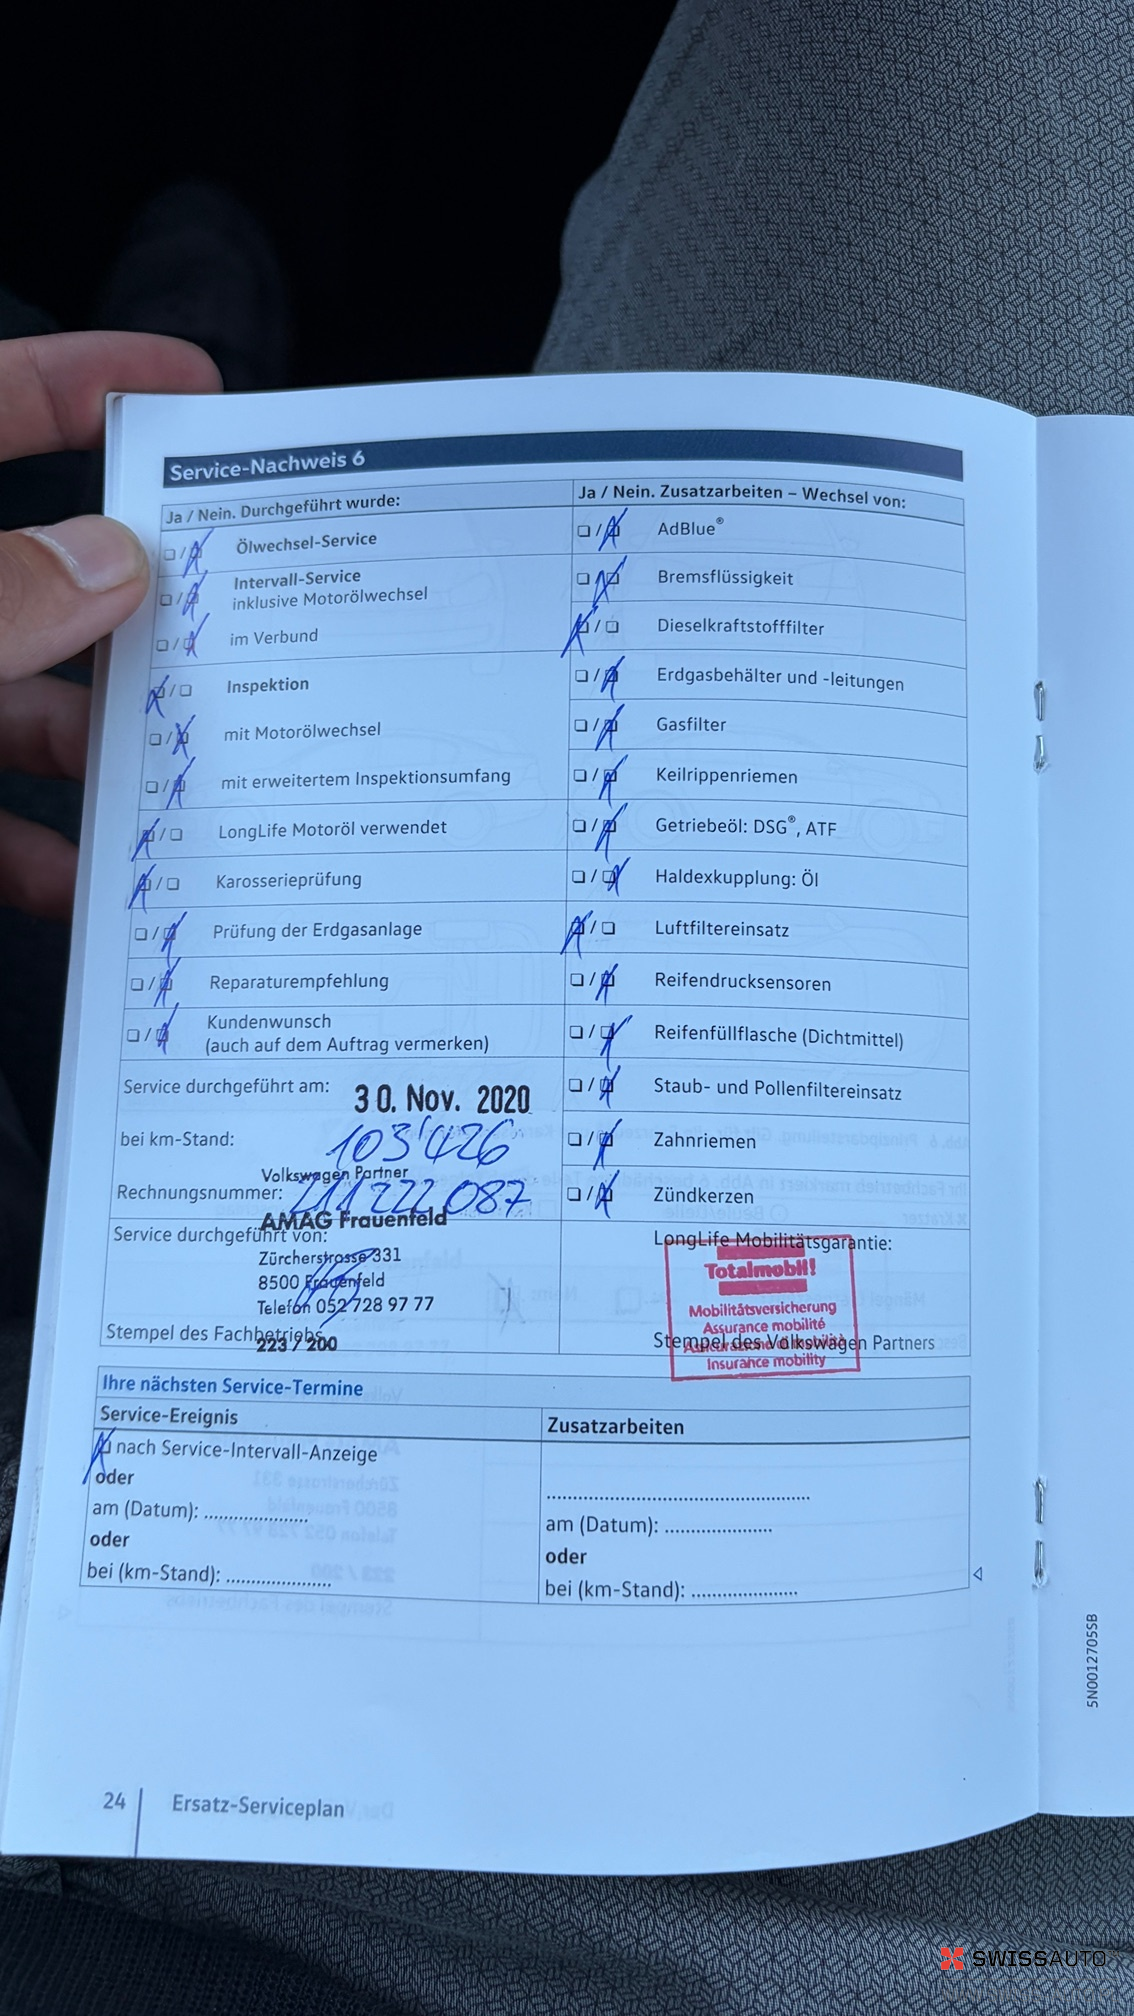 Service-Nachweis 6
Ja / Nein. Durchgeführt wurde:
❏ / ❏ Ölwechsel-Service
❏ / ❏ Intervall-Service
inklusive Motorölwechsel
❏ / ❏ im Verbund
❏ / ❏ Inspektion
❏ / ❏ mit Motorölwechsel
❏ / ❏ mit erweitertem Inspektionsumfang
❏ / ❏ LongLife Motoröl verwendet
❏ / ❏ Karosserieprüfung
❏ / ❏ Prüfung der Erdgasanlage
❏ / ❏ Reparaturempfehlung
❏ / ❏ Kundenwunsch
(auch auf dem Auftrag vermerken)
Service durchgeführt am: 30. Nov. 2020
bei km-Stand: 103'426
Volkswagen Partner
Rechnungsnummer: 211 222 087
AMAG Frauenfeld
Service durchgeführt von:
Zürcherstrasse 331
8500 Frauenfeld
Telefon 052 728 97 77
Stempel des Fachbetriebs
223 / 200
Ja / Nein. Zusatzarbeiten – Wechsel von:
❏ / ❏ AdBlue®
❏ / ❏ Bremsflüssigkeit
❏ / ❏ Dieselkraftstofffilter
❏ / ❏ Erdgasbehälter und -leitungen
❏ / ❏ Gasfilter
❏ / ❏ Keilrippenriemen
❏ / ❏ Getriebeöl: DSG®, ATF
❏ / ❏ Haldexkupplung: Öl
❏ / ❏ Luftfiltereinsatz
❏ / ❏ Reifendrucksensoren
❏ / ❏ Reifenfüllflasche (Dichtmittel)
❏ / ❏ Staub- und Pollenfiltereinsatz
❏ / ❏ Zahnriemen
❏ / ❏ Zündkerzen
LongLife Mobilitätsgarantie:
Totalmobil!
Mobilitätsversicherung
Assurance mobilité
Stempel des Volkswagen Partners
Insurance mobility
Ihre nächsten Service-Termine
Service-Ereignis
❏ nach Service-Intervall-Anzeige
oder
am (Datum): .....................
oder
bei (km-Stand): .....................
Zusatzarbeiten
.....................................................
am (Datum): .....................
oder
bei (km-Stand): .....................
5N0012705SB
24 Ersatz-Serviceplan
SWISSAUTO